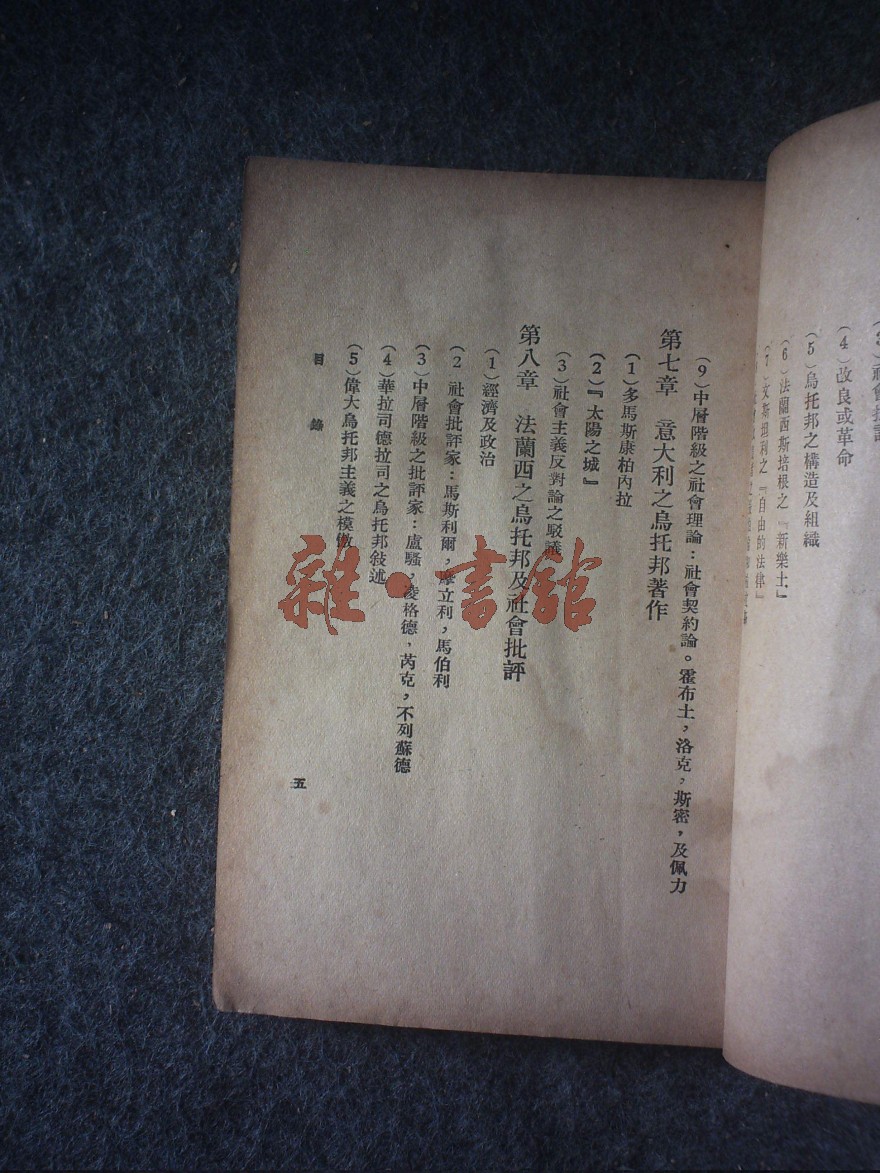 (4)改良或革命
(5)烏托邦之構造及組織
(6)法蘭西斯培根之『新樂土』
(7)文斯坦利之『自由的法律』
(9)中層階級之社會理論：社會契約論。霍布士，洛克，斯密，及佩力
第七章　意大利之烏托邦著作
(1)多馬斯康柏內拉
(2)『太陽之城』
(3)社會主義反對論之駁議
第八章　法蘭西之烏托邦及社會批評
(1)經濟及政治
(2 社會批評家：馬斯利爾，摩立利，馬伯利
(3)中層階級之批評家：盧騷，凌格德，芮克，不列蘇德
(4)華拉司德拉司之烏托邦敍述
(5)偉大烏托邦主義之模倣
目錄
五
雜·書館